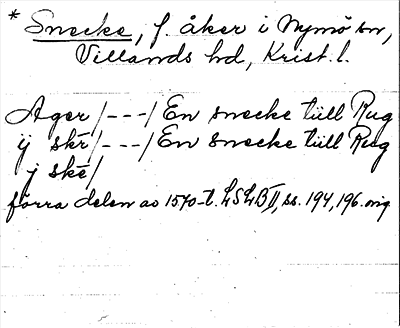 * Snecke, f. åker i Nymö sn,
Villands hd, Krist. l.
Ager /---/ En snecke tüll Rug
ÿ skĕ /---/ En snecke tüll Rug
j skĕ/
förra delen av 1570-t. LSLB II, ss. 194, 196. orig